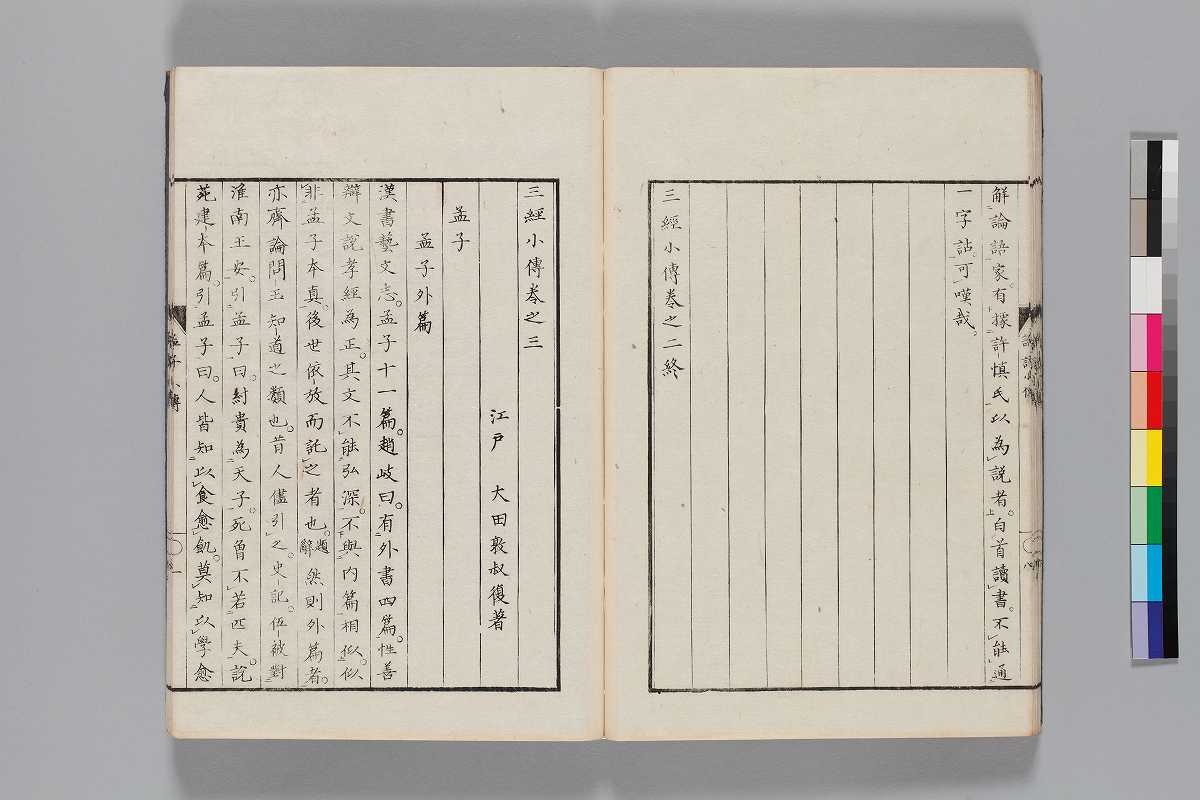 解論語家有據許慎氏以為說者。白首讀書。不能通
一字詁。可嘆哉。
三經小傳卷之二終
三經小傳卷之三
江戶　大田敦叔復著
孟子
孟子外篇
漢書藝文志。孟子十一篇。趙岐曰。有外書四篇。性善
辯文說孝經為正。其文不能弘深。不與內篇相似。似
非孟子本真。後世依放而託之者也。題辭然則外篇者。
亦齊論問王知道之類也。昔人儘引之。史記伍被對
淮南王安。引孟子曰。紂貴為天子。死曾不若匹夫。說
苑建本篇。引孟子曰。人皆知以食愈飢。莫知以學愈